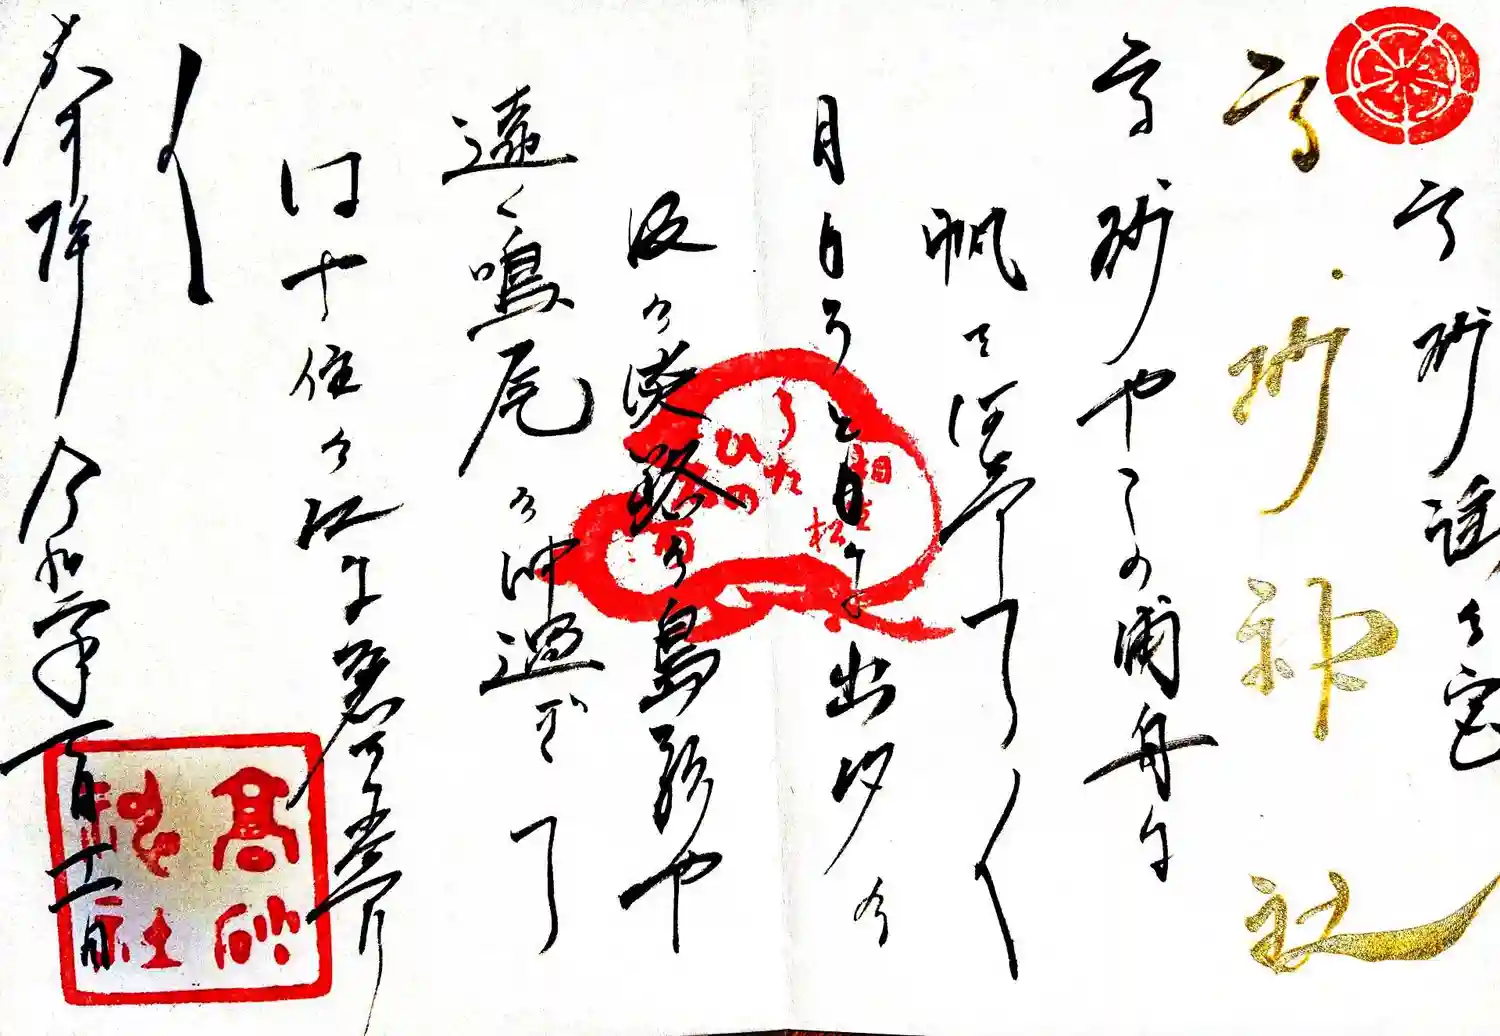 高砂謡の宮
高砂神社
高砂やこの浦舟に
帆を
月もろともに出汐の
波の淡路の島影や
遠く鳴尾の沖過ぎて
はや住の江に
奉拝 令和
相生松
うた
ひの
宮
高砂
神社